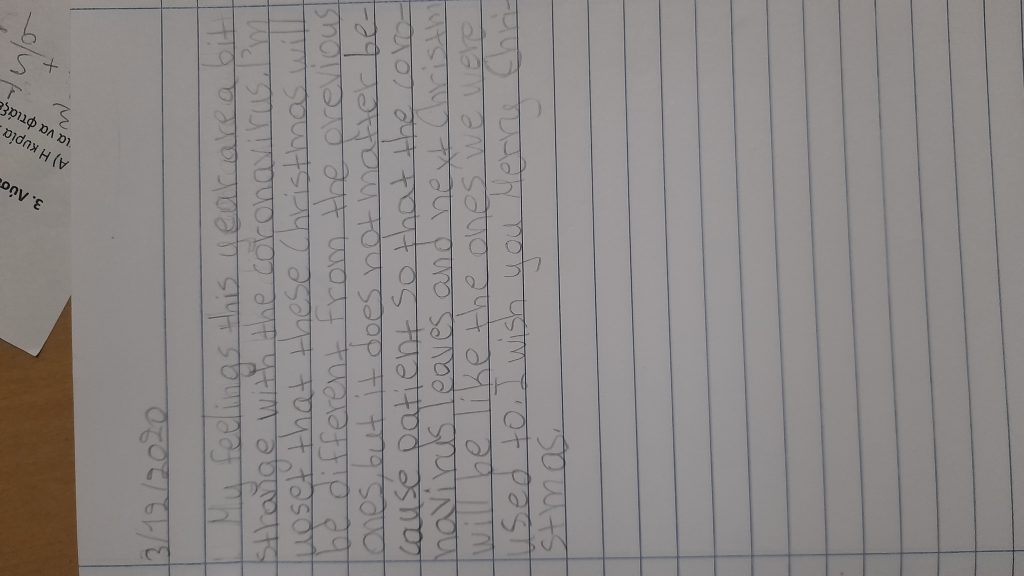 3/12/2020
My feelings this year area bit
strange with the coronavirus. I'm
upset that these Christmas will
be different from the previous
ones, but it does not matter be-
cause patient so that the coro-
navirus leaves and next Christm
will be like the ones we were
used to. I wish you Merry Chri-
stmas.
3. Λύσ
Α) Η κυρία
να φτιάξε